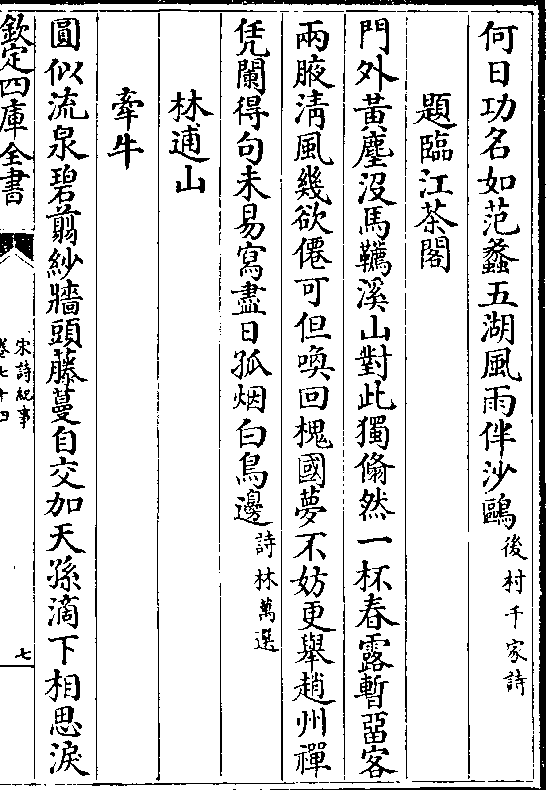 何日功名如范蠡五湖風雨伴沙鷗後村千家詩
題臨江茶閣
門外黃塵没馬韉溪山對此獨翛然一杯春露暫畱客
兩腋清風幾欲僊可但喚回槐國夢不妨更舉趙州禪
凭闌得句未易寫盡日孤烟白鳥邊詩林萬選
林逋山
牽牛
圓似流泉碧翦紗牆頭藤蔓自交加天孫滴下相思淚
欽定四庫全書
宋詩紀事
卷七十四
七